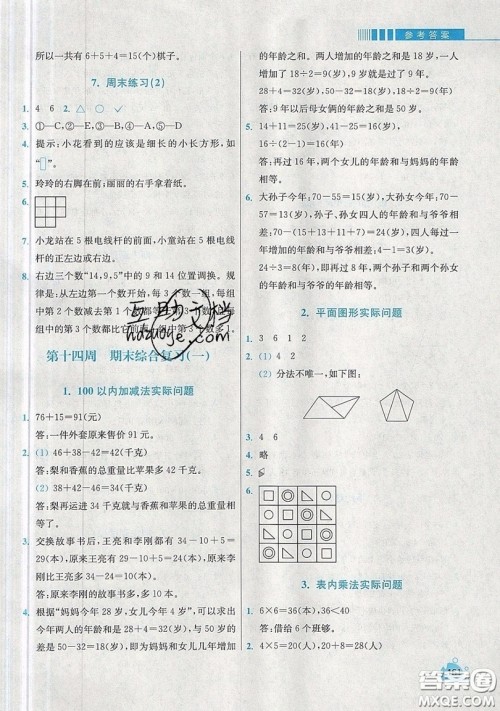 参考答案
所以一共有 6+5+4=15(个)棋子。
7. 周末练习(2)
1. 4 6 2. △ ○ ✓
3. ①—C,②—E,③—A,④—B,⑤—D
4. 提示:小花看到的应该是细长的小长方形,如
“▯”。
5. 玲玲的右脚在前;丽丽的右手拿着纸。
6.
7. 小龙站在 5 根电线杆的前面,小童站在 5 根电线
杆的正左边或右边。
8. 右边三个数“14,9,5”中的 9 和 14 位置调换。规
律是:从左边第一个数开始,每 3 个数一组,每组
中第 2 个数减去第 1 个数都
第 3 个数 每组中第 3 个数多 1。
互助文档
huzuoye.com
第十四周 期末综合复习(一)
1. 100 以内加减法实际问题
1. 76+15=91(元)
答:一件外套原来售价 91 元。
2. (1) 46+38-42=42(千克)
答:梨和香蕉的总重量比苹果多 42 千克。
(2) 38+42-46=34(千克)
答:梨再运进 34 千克就与香蕉和苹果的总重量
同样多。
3. 交换故事书后,王亮和李刚都有 34-10+5=
29(本),原来王亮有 29-10+5=24(本),原来李
刚比王亮多 34-24=10(本)。
答:原来李刚的故事书多,多 10 本。
4. 根据“妈妈今年 28 岁,女儿今年 4 岁”,可以求出
今年两人的年龄和是 28+4=32(岁)。若两人的
年龄和是 50 岁,即为两人今年的年龄和与增加
的年龄之和。两人增加的年龄之和是 18 岁,一人
增加了 18÷2=9(岁)。
28+4=32(岁),50-32=18(岁),18÷2=9(岁)
答:9 年以后母女俩的年龄之和是 50 岁。
5. 14+11=25(岁),41-25=16(岁)
16÷1=16(年)
答:再过 16 年,两个女儿的年龄和与妈妈的年龄
相等。
6. 大孙子今年:70-55=15(岁),大孙女今年:70-
57=13(岁),孙子、孙女四人的年龄和与爷爷相
差:70-(15+13+5+4)=33(岁),每过一年,四
人的年龄和与爷爷年龄相差:4-1=3(岁)。
33÷3=11(年),即再过 11 年,两个孙子和两个
孙女的年龄和与爷爷的年龄相等。
2. 平面图形实际问题
1. 3 6 1 2
2. (1) 4 2
(2) 分法不唯一,如下图:
3. 4 6
4. 略
5.
6.
3. 表内乘法实际问题
1. 6×6=36(本),36<40
答:借给 6 个班够。
2. 4×5=20(人),20+8=28(人)
答案圈
MXQE.COM